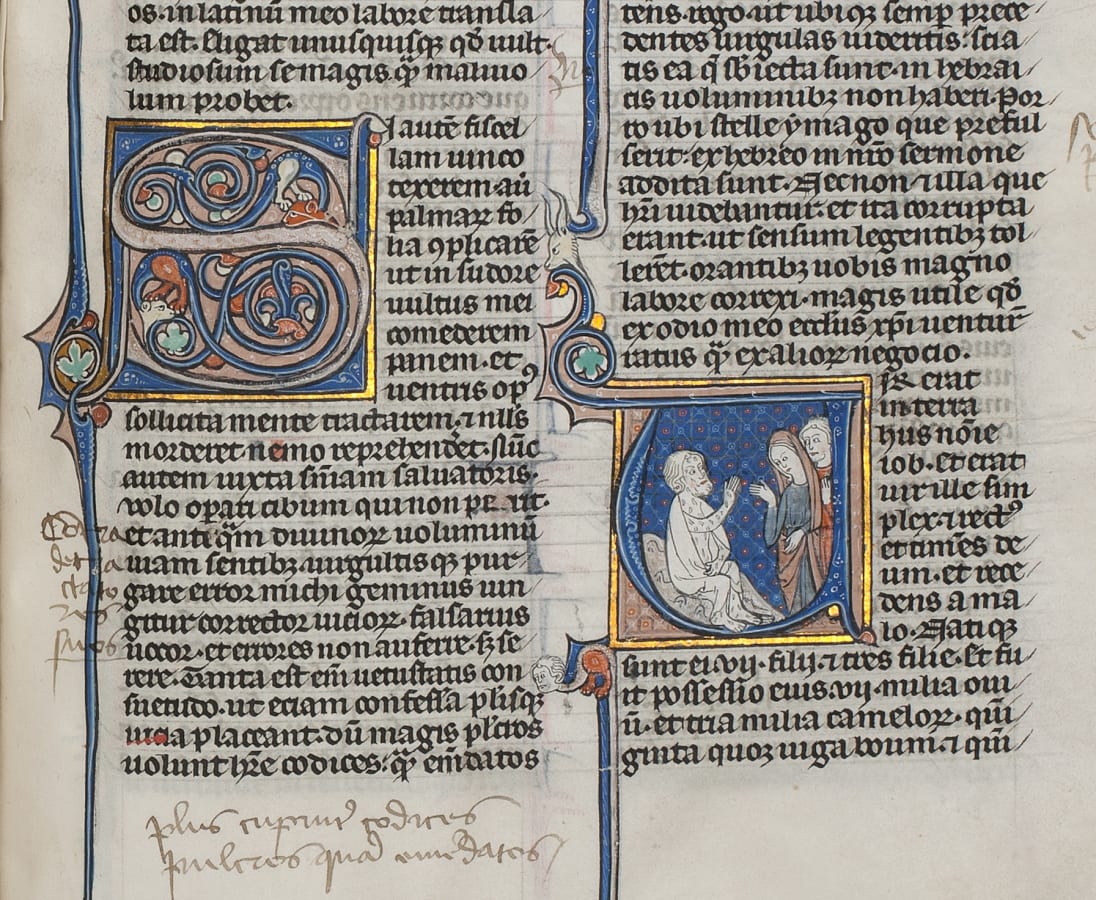 os. in latinū meo labore transla
ta est. Eligat unusquisq; qd̄ uult.
studiosum se magis. qᷓ maliuo
lum probet.
I autē fiscel
lam iunco
texerem. aū
palmaꝝ fo
lia ꝯplicarē
ut in sudore
uultus mei
comederem
panem. et
uentris opꝰ
sollicita mente tractarem. ⁊ nllꝰ
morderet. nemo reprehenderet. Nūc
autem iuxta sn̄iam saluatoris.
uolo opari cibum qui non perit.
et antiqᷓm diuinoꝝ uoluminū
uiam sentibꝫ uirgultisqꝫ pur
gare error michi geminus iin
gitur corrector uicioꝝ. falsarius
uocor. et errores non auferre. sꝫ se
rere. Tanta est eī uetustatis con
suetudo. ut eciam confessa plisqꝫ
uicia placeant. dū magis plcros
uolunt hr̄e codices. qᷓ em̄datos
Contra
detra
ctato
res
suos
plus cupiunt codices
pulcros quam emendatos
tens. rogo. ut ubiqꝫ semp prece
dentes uirgulas uideritis: scia
tis ea q̄ sb iecta sunt. in hebrai
cis uoluminibꝫ non haberi. Por
ro ubi stelle ymago que preful
serit: ex hebreo in nr̄o sermone
addita sunt. Necnon ⁊ illa que
hr̄i uidebantur. et ita corrupta
erant. ut sensum legentibꝫ tol
lerēt. orantibꝫ uobis magno
labore correxi. magis utile qd̄
ex odio meo ecclīis xp̄i uentur̄
ratus qᷓ ex alioꝝ negocio.
IR erat
in terra
hus noīe
iob. et erat
uir ille sim
plex. ⁊ rectꝰ
et timēs de
um. et rece
dens a ma
lo. Natiqꝫ
sunt ei. vii. filij. ⁊ tres filie. Et fu
it possessio eius. vii. milia oui
ū. et tria milia cameloꝝ. qūi
ginta quoꝫ iuga boum. ⁊ qūi